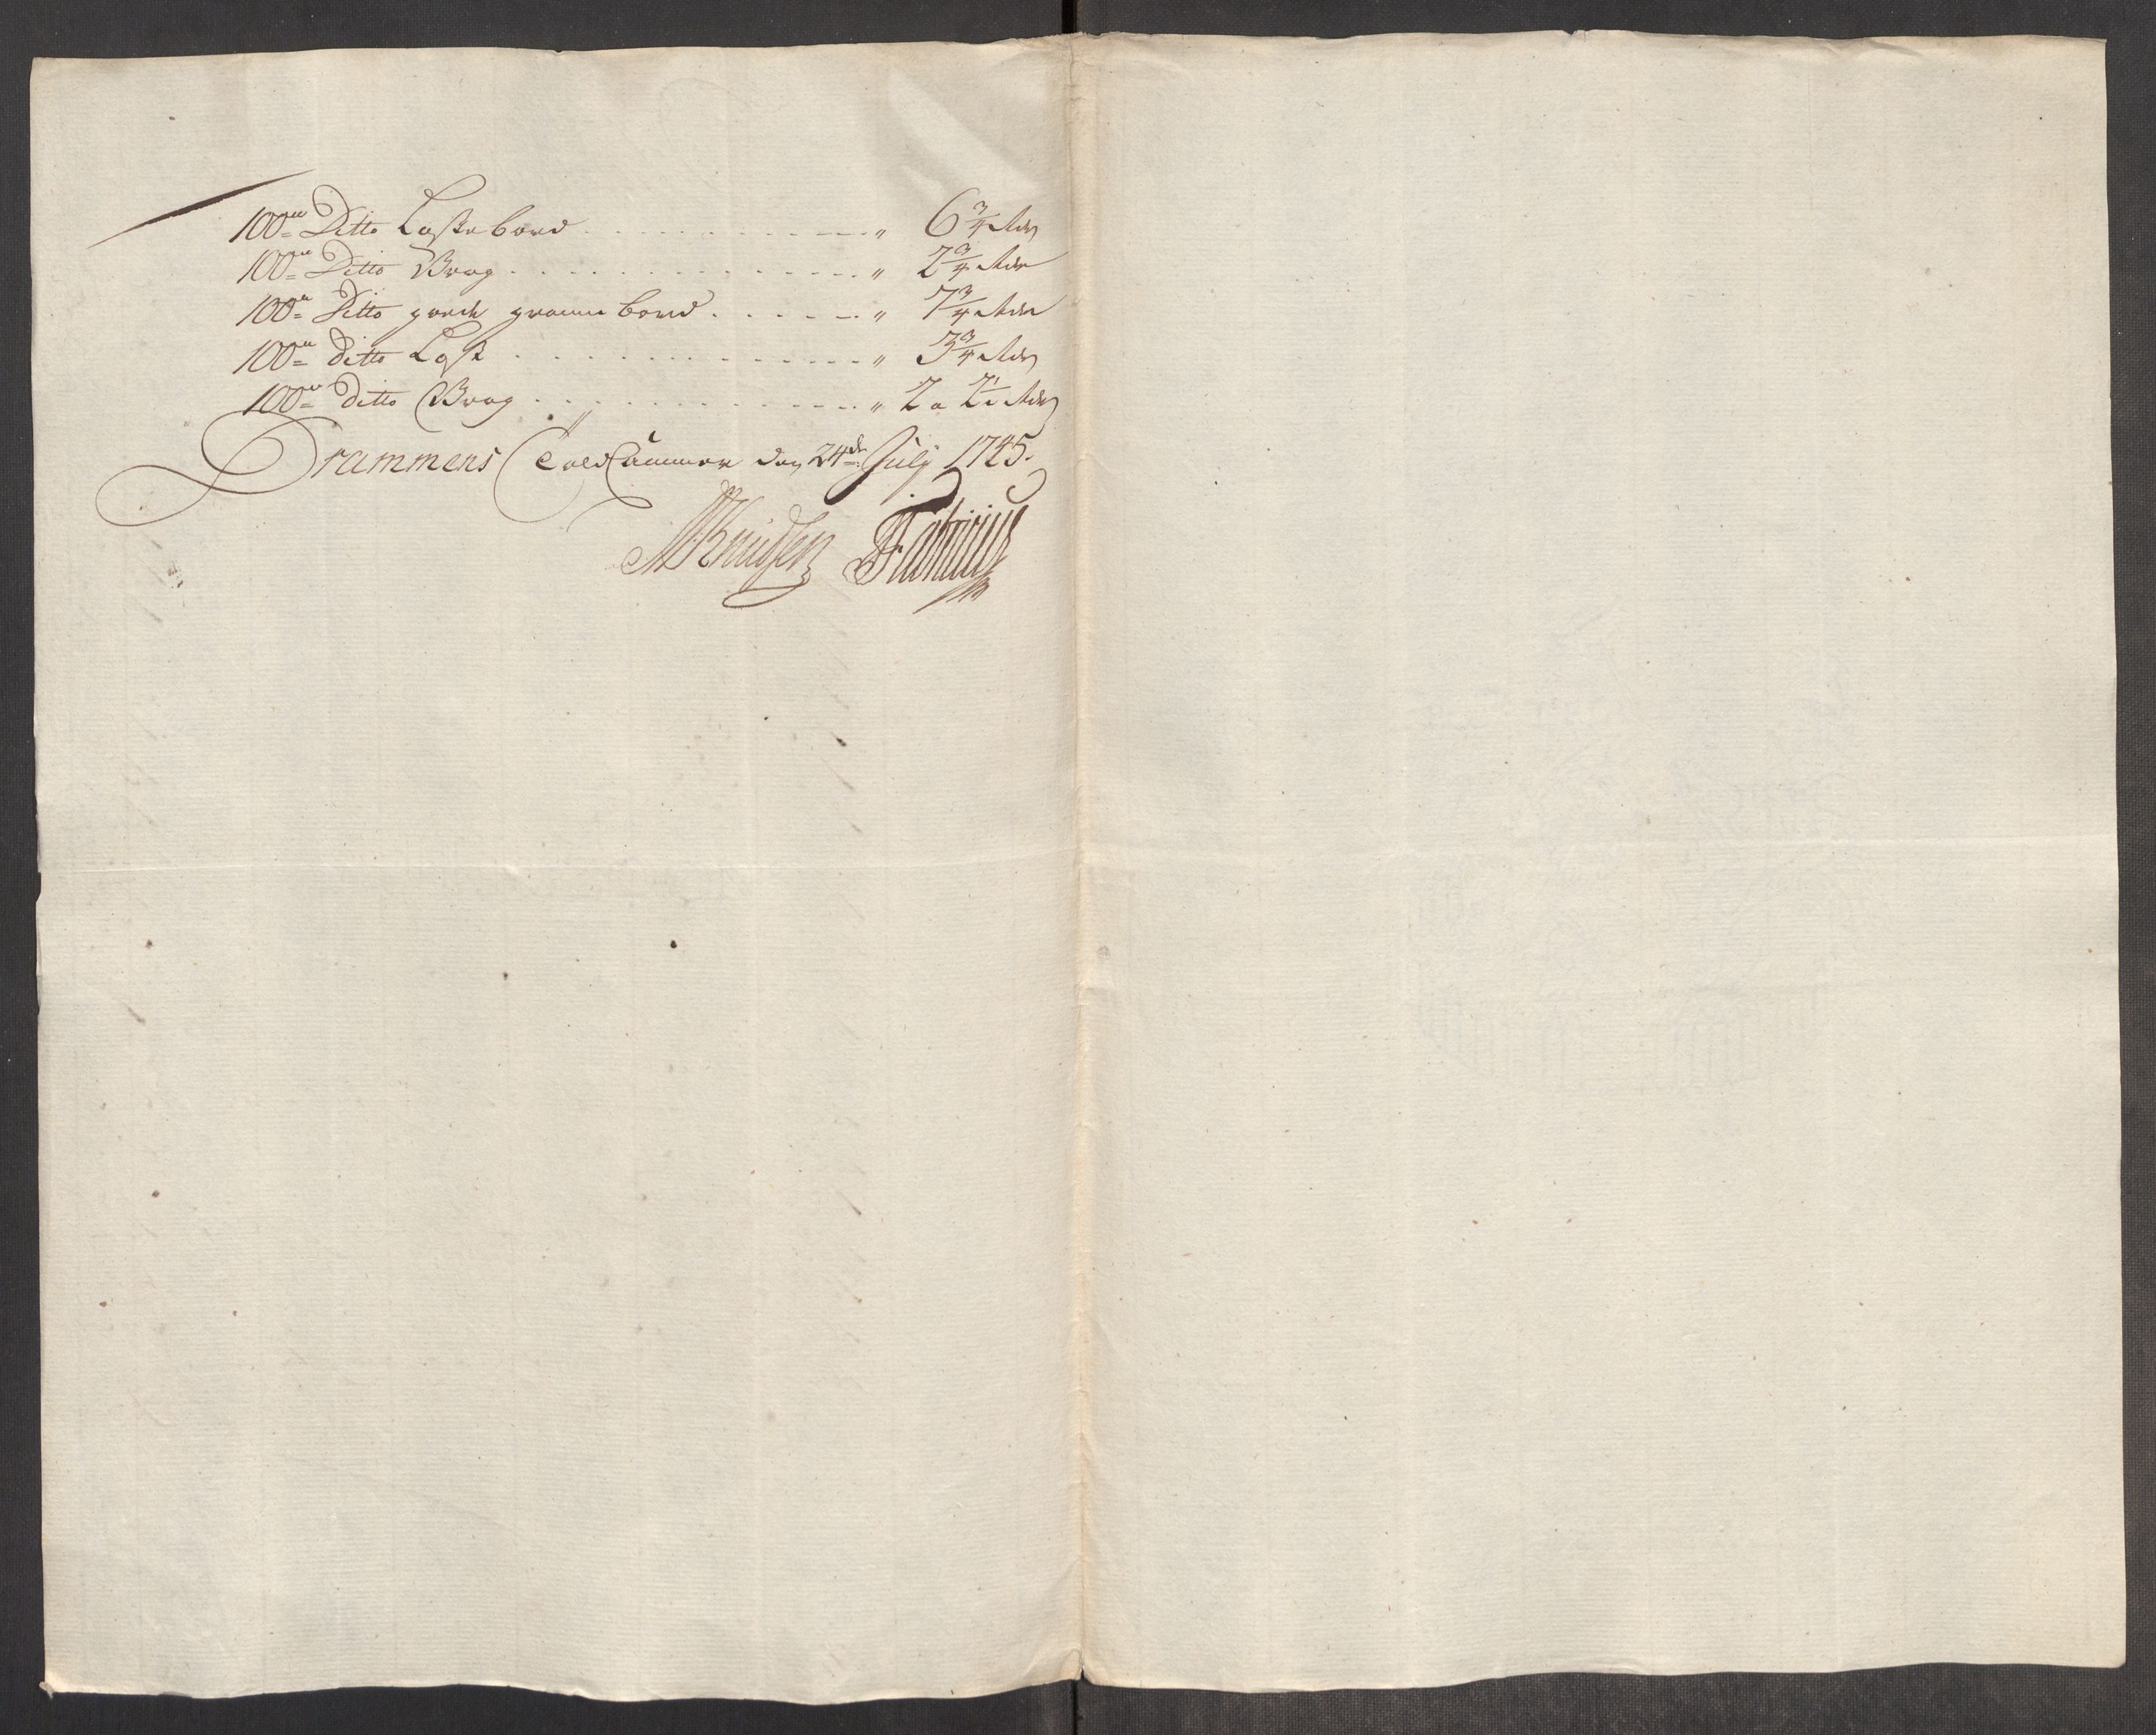 100de Ditto Laste bord . . . . . . . . . . . " 6 3/4 rdr
100de Ditto Vrag . . . . . . . . . . . . . " 2 3/4 rdr
100de Ditto goede graune bord . . . . . " 7 3/4 rdr
100de ditto Last . . . . . . . . . . . . . " 3 3/4 rdr
100de ditto Vrag . . . . . . . . . . . . " 2 a 2 1/2 rdr
Drammens Told Cammer den 24de July 1745.
MKnudsen Fabricius